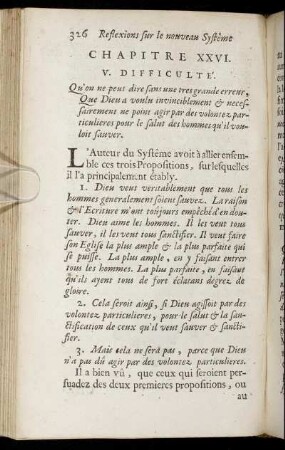 326 Reflexions sur le nouveau Systême
CHAPITRE XXVI.
V. DIFFICULTE'.
Qu'on ne peut dire sans une tres grande erreur,
Que Dieu a voulu invinciblement & neces-
sairement ne point agir par des volontez par-
ticulieres pour le salut des hommes qu'il vou-
loit sauver.
L'Auteur du Systême avoit à allier ensem-
ble ces trois Propositions, sur lesquelles
il l'a principalemnt étably.
1. Dieu veut veritablement que tous les
hommes generalement soient sauvez. La raison
& l'Ecriture m'ont toûjours empêché d'en dou-
ter. Dieu aime les hommes. Il les veut tous
sauver, il les veut tous sanctifier. Il veut faire
son Eglise la plus ample & la plus parfaite qui
se puisse. La plus ample, en y faisant entrer
tous les hommes. La plus parfaite, en faisant
qu'ils ayent tous de fort éclatans degrez de
gloire.
2. Cela seroit ainsi, si Dieu agissoit par des
volontez particulieres, pour le salut & la san-
ctification de ceux qu'il veut sauver & sancti-
fier.
3. Mais cela ne sera pas, parce que Dieu
n'a pas dû agir par des volontez particulieres.
Il a bien vû, que ceux qui seroient per-
suadez des deux premieres propositions, ou
au